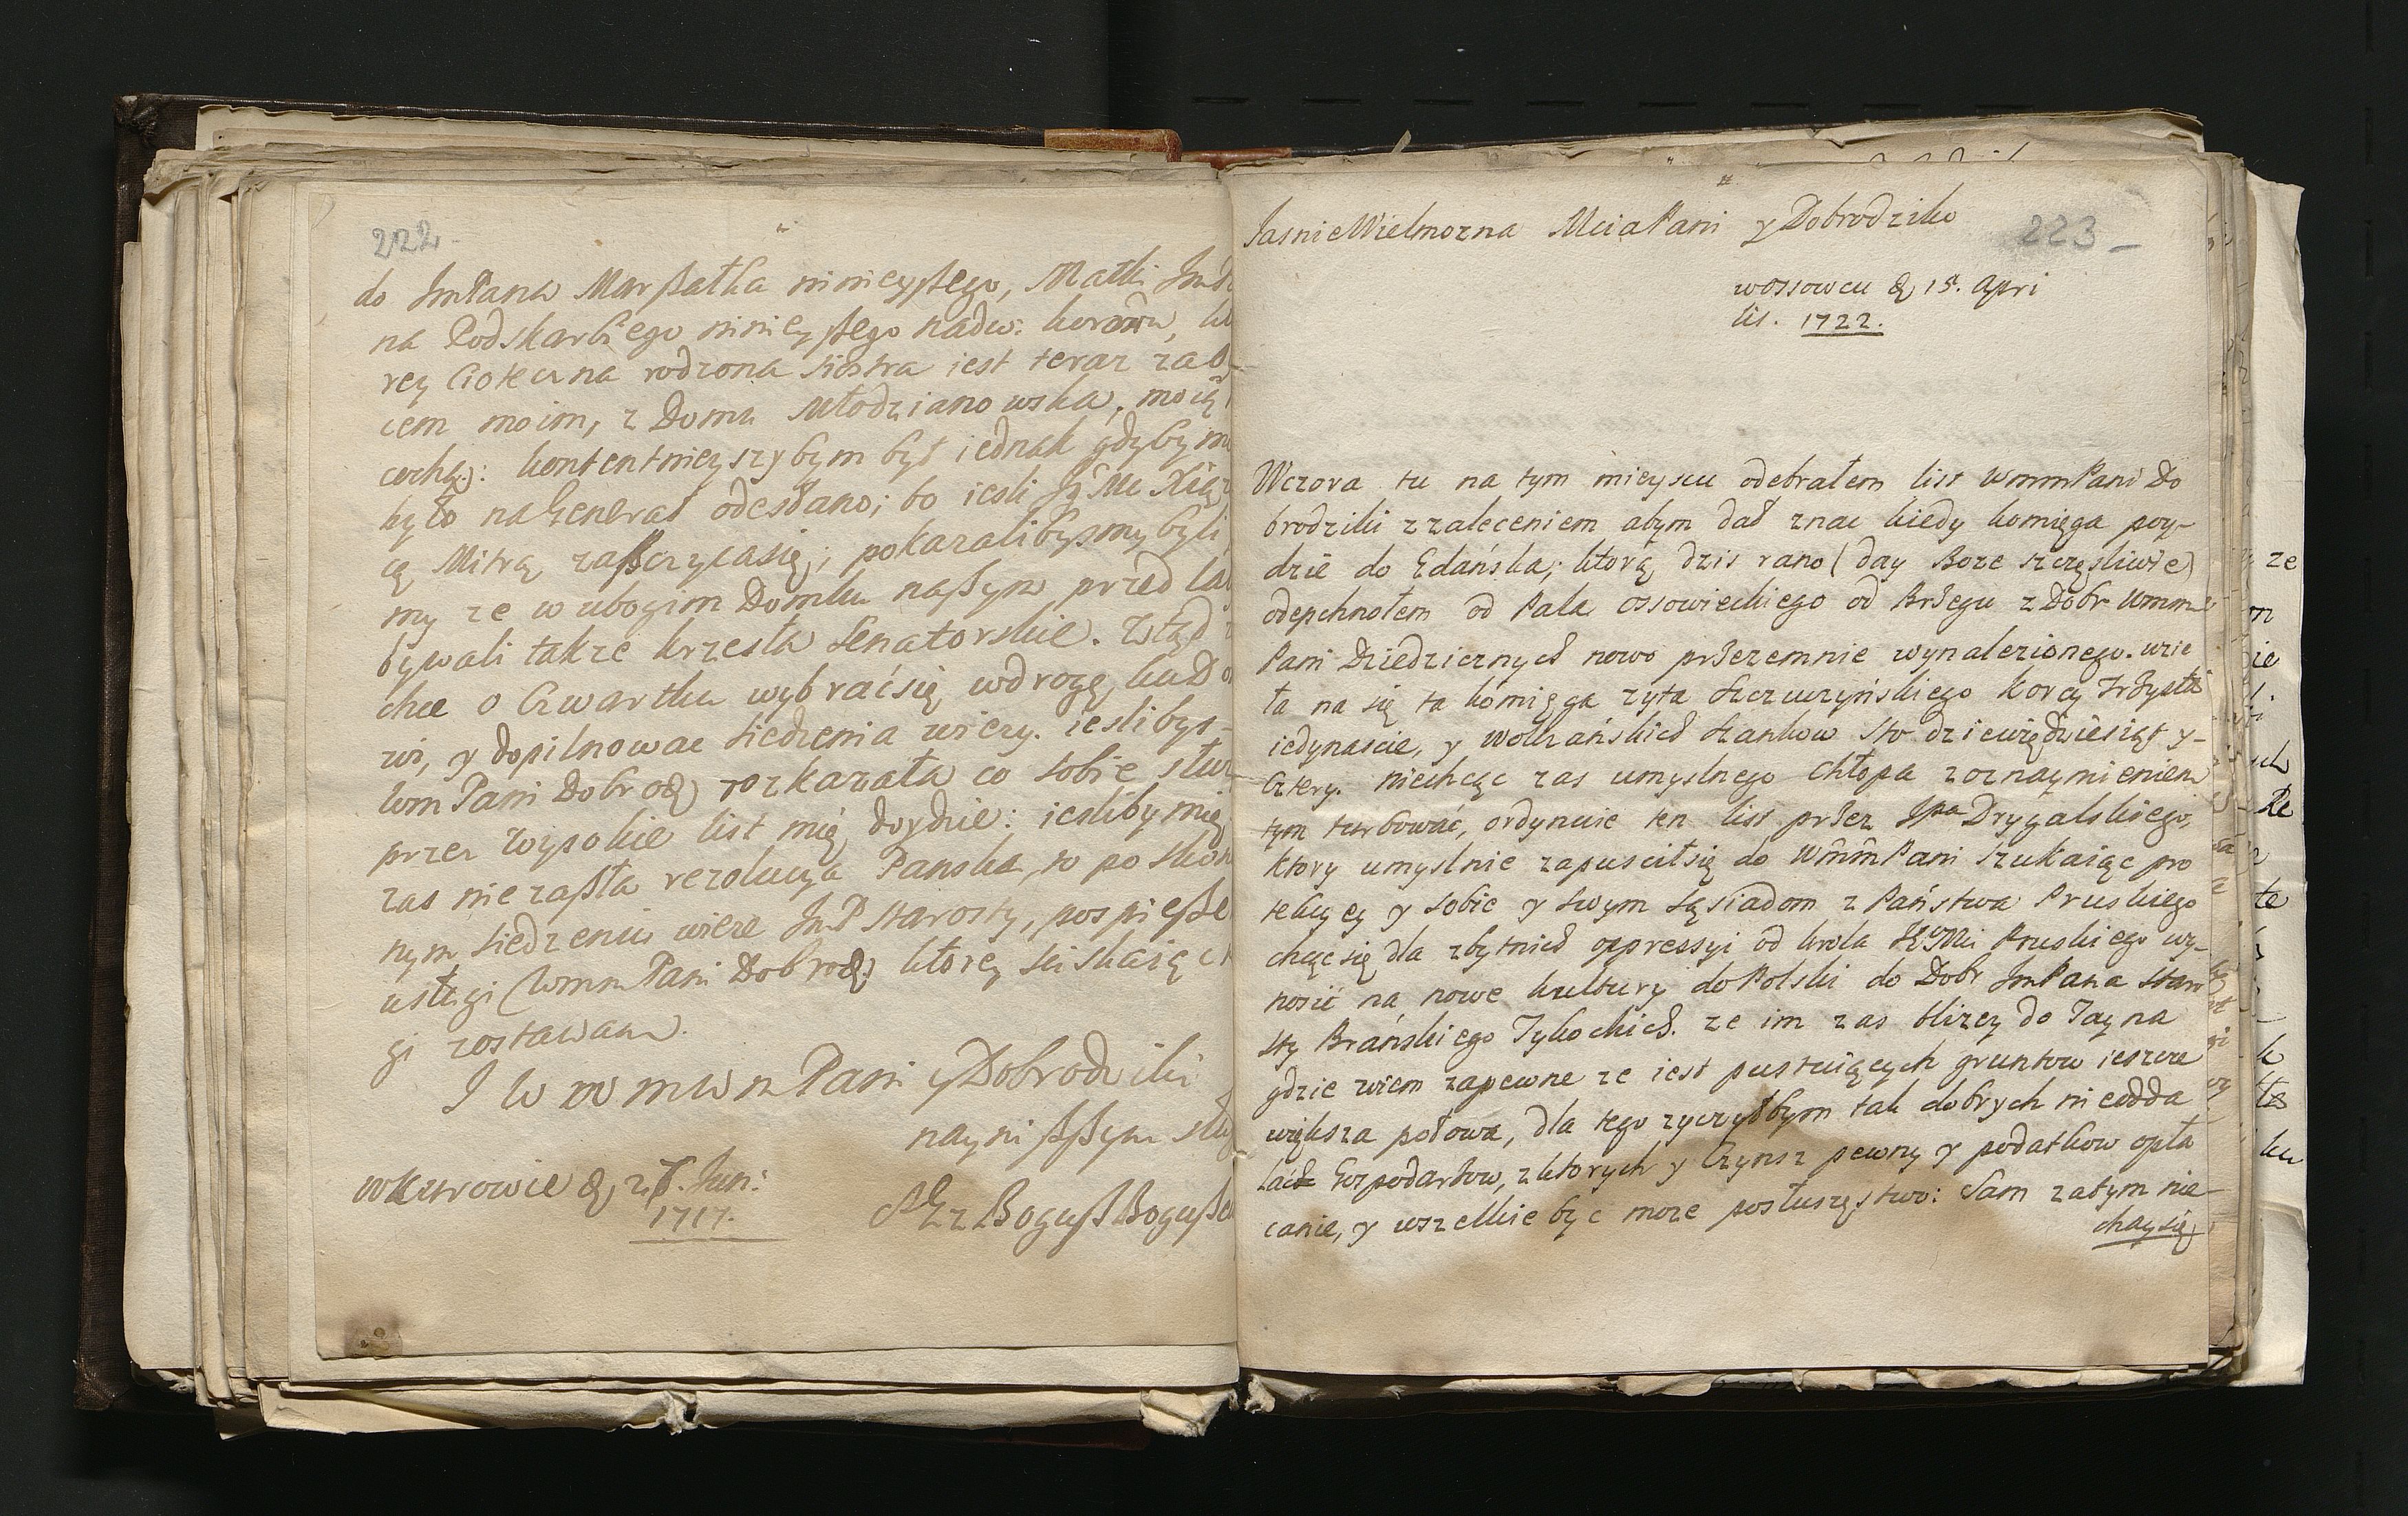 222
do JmPana Marszałka ninieyszego, Matki
na Podskarbiego ninieyszego nadw:
rey Cioteczna rodzona siostra iest teraz za
cem moim, z Domu Młodzianowska, moią
corką): kontentnieyszybym był iednak gdyby
było na Generał odesłano; bo iesli
cą Mitrą zaszczycasię; pokazalibysmy byli
my ze w ubogim Domku naszym przed
bywali takze krzesła Senatorskie. Ztąd
chce o Czwartku wybraćsię wdrogę, ku
wi, y dopilnowac siedzenia wiezy. ieslibys-
Wm Pani Dobrodź rozkazała co sobie
przez Wysokie list mię doydzie: iesliby mię
zas nie zaszła rezolucya Panska, to po
nym siedzeniu wieze JmP Starosty, pospieszę
usługi WmmPani Dobrodź ktorey
gi zostawam.
Pani y Dobrodziki
nayniszszym
wKurowie d, 27. Jun:
1717.
Bogusz
Jasnie Wielmozna Mcia Pani y Dobrodziko
223
wossowcu d, 15. Apri
lis. 1722.
Wczora tu na tym mieyscu odebrałem list WmmPani Do
brodziki zzaleceniem abym dał znac kiedy komięga poy-
dzie do Gdańska; ktorą dzis rano (day Boze szczęsliwie)
odepchnołem od Pala ossowieckiego od Brzegu z Dobr Wmm
Pani Dziedzicznych nowo przezemnie wynalezionego. wzie
ła na się ta komięga zyta Szczuczyńskiego Korcy Trzysta
iedynascie, y Wolkańskich Szankow Sto dziewiędziesiąt y-
Cztery. niechcąc zas umyslnego Chłopa zoznaymieniem
tym turbować, ordynuie ten list przez Jpa Drygalskiego,
ktory umyslnie zapusciłsię do WmmPani Szukaiąc pro
tekcyey y sobie y swym Sąsiadom z Państwa Pruskiego
chcąc się dla zbytnich oppressyi od krola Pruskiego wy-
nosić na nowe kultury do Polski do Dobr JmPana Staro
sty Brańskiego Tykockich. ze im zas blizey do Jayna
gdzie wiem zapewne ze iest pustuiących gruntow ieszcze
większa połowa, dla tego zyczyłbym tak dobrych nieodda
lać Gospodarzow, zktorych y Czynsz pewny y podatkow opła
canie, y wszelkie być moze posłuszęstwo: Sam zatym nie-
chaysię